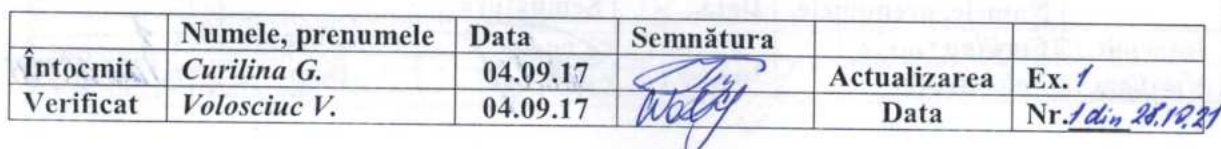 Numele, prenumele Data Semnătura
Întocmit Curilina G. 04.09.17 Actualizarea Ex. 1
Verificat Volosciuc V. 04.09.17 Data Nr. 1 din 28.10.21